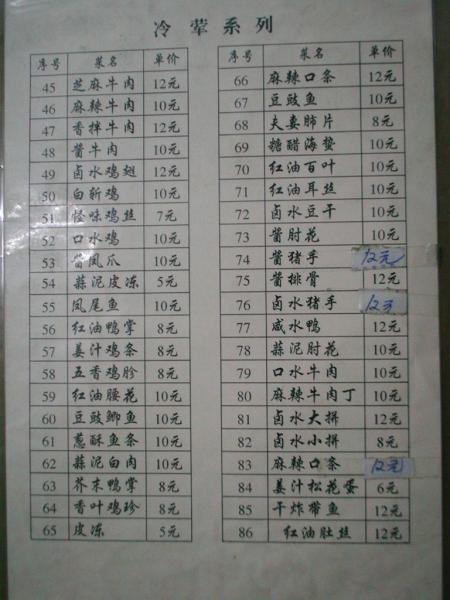 冷荤系列
序号 菜名 单价
45 芝麻牛肉 12元
46 麻辣牛肉 10元
47 香拌牛肉 12元
48 酱牛肉 10元
49 卤水鸡翅 12元
50 白斩鸡 10元
51 怪味鸡丝 7元
52 口水鸡 10元
53 酱凤爪 10元
54 蒜泥皮冻 5元
55 凤尾鱼 10元
56 红油鸭掌 8元
57 姜汁鸡条 8元
58 五香鸡胗 8元
59 红油腰花 10元
60 豆豉鲫鱼 10元
61 葱酥鱼条 10元
62 蒜泥白肉 10元
63 芥末鸭掌 8元
64 香叶鸡珍 8元
65 皮冻 5元
序号 菜名 单价
66 麻辣口条 12元
67 豆豉鱼 10元
68 夫妻肺片 8元
69 糖醋海蜇 10元
70 红油百叶 10元
71 红油耳丝 10元
72 卤水豆干 10元
73 酱肘花 10元
74 酱猪手 12元
75 酱排骨 12元
76 卤水猪手 12元
77 咸水鸭 12元
78 蒜泥肘花 10元
79 口水牛肉 10元
80 麻辣牛肉丁 10元
81 卤水大拼 12元
82 卤水小拼 8元
83 麻辣口条 12元
84 姜汁松花蛋 6元
85 干炸带鱼 12元
86 红油肚丝 12元